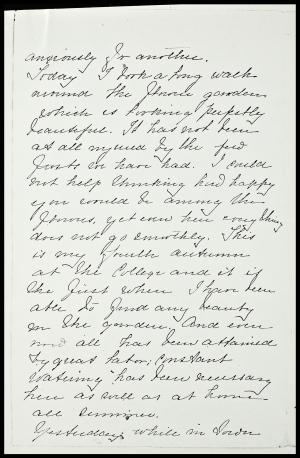 anxiously for another.
Today I took a long walk
around the flower garden
which is looking perfectly
beautiful. It has not been
at all injured by the few
frosts we have had. I could
not help thinking how happy
you would be among the
flowers, yet even here everything
does not go smoothly. This
is my fourth autumn
at the College and it is
the first when I have been
able to find any beauty
in the garden, and even
now all has been attained
by great labor; constant
watering has been necessary
here as well as at home
all summer.
Yesterday, while in town